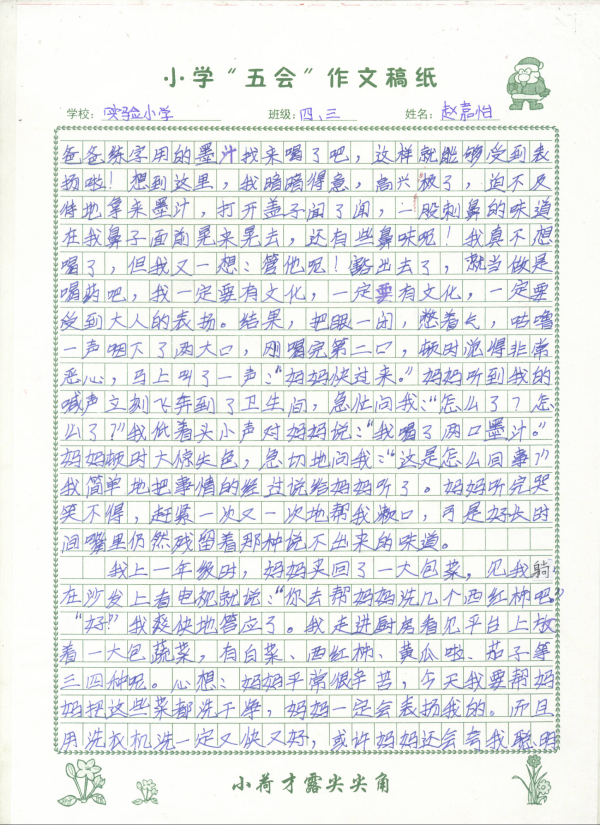 小学“五会”作文稿纸
学校：实验小学 班级：四、三 姓名：赵嘉怡
爸爸练字用的墨汁找来喝了吧，这样就能够受到表
扬啦！想到这里，我暗暗得意，高兴极了，迫不及
待地拿来墨汁，打开盖子闻了闻，一股刺鼻的味道
在我鼻子面前晃来晃去，还有些臭味呢！我真不想
喝了，但我又一想：管他呢！豁出去了，就当做是
喝药吧，我一定要有文化，一定要有文化，一定要
受到大人的表扬。结果，把眼一闭，憋着气，咕噜
一声咽下了两大口，刚喝完第二口，顿时觉得非常
恶心，马上叫了一声：“妈妈快过来。”妈妈听到我的
喊声立刻飞奔到了卫生间，急忙问我：“怎么了？怎
么了？”我低着头小声对妈妈说：“我喝了两口墨汁。”
妈妈顿时大惊失色，急切地问我：“这是怎么回事？”
我简单地把事情的经过说给妈妈听了。妈妈听完哭
笑不得，赶紧一次又一次地帮我漱口，可是好长时
间嘴里仍然残留着那种说不出来的味道。
我上一年级时，妈妈买回了一大包菜，见我躺
在沙发上看电视就说：“你去帮妈妈洗几个西红柿吧。”
“好！”我爽快地答应了。我走进厨房看见平台上放
着一大包蔬菜，有白菜、西红柿、黄瓜啦、茄子等
三四种呢。心想：妈妈平常很辛苦，今天我要帮妈
妈把这些菜都洗干净，妈妈一定会表扬我的。而且
用洗衣机洗一定又快又好，或许妈妈还会夸我聪明
小荷才露尖尖角